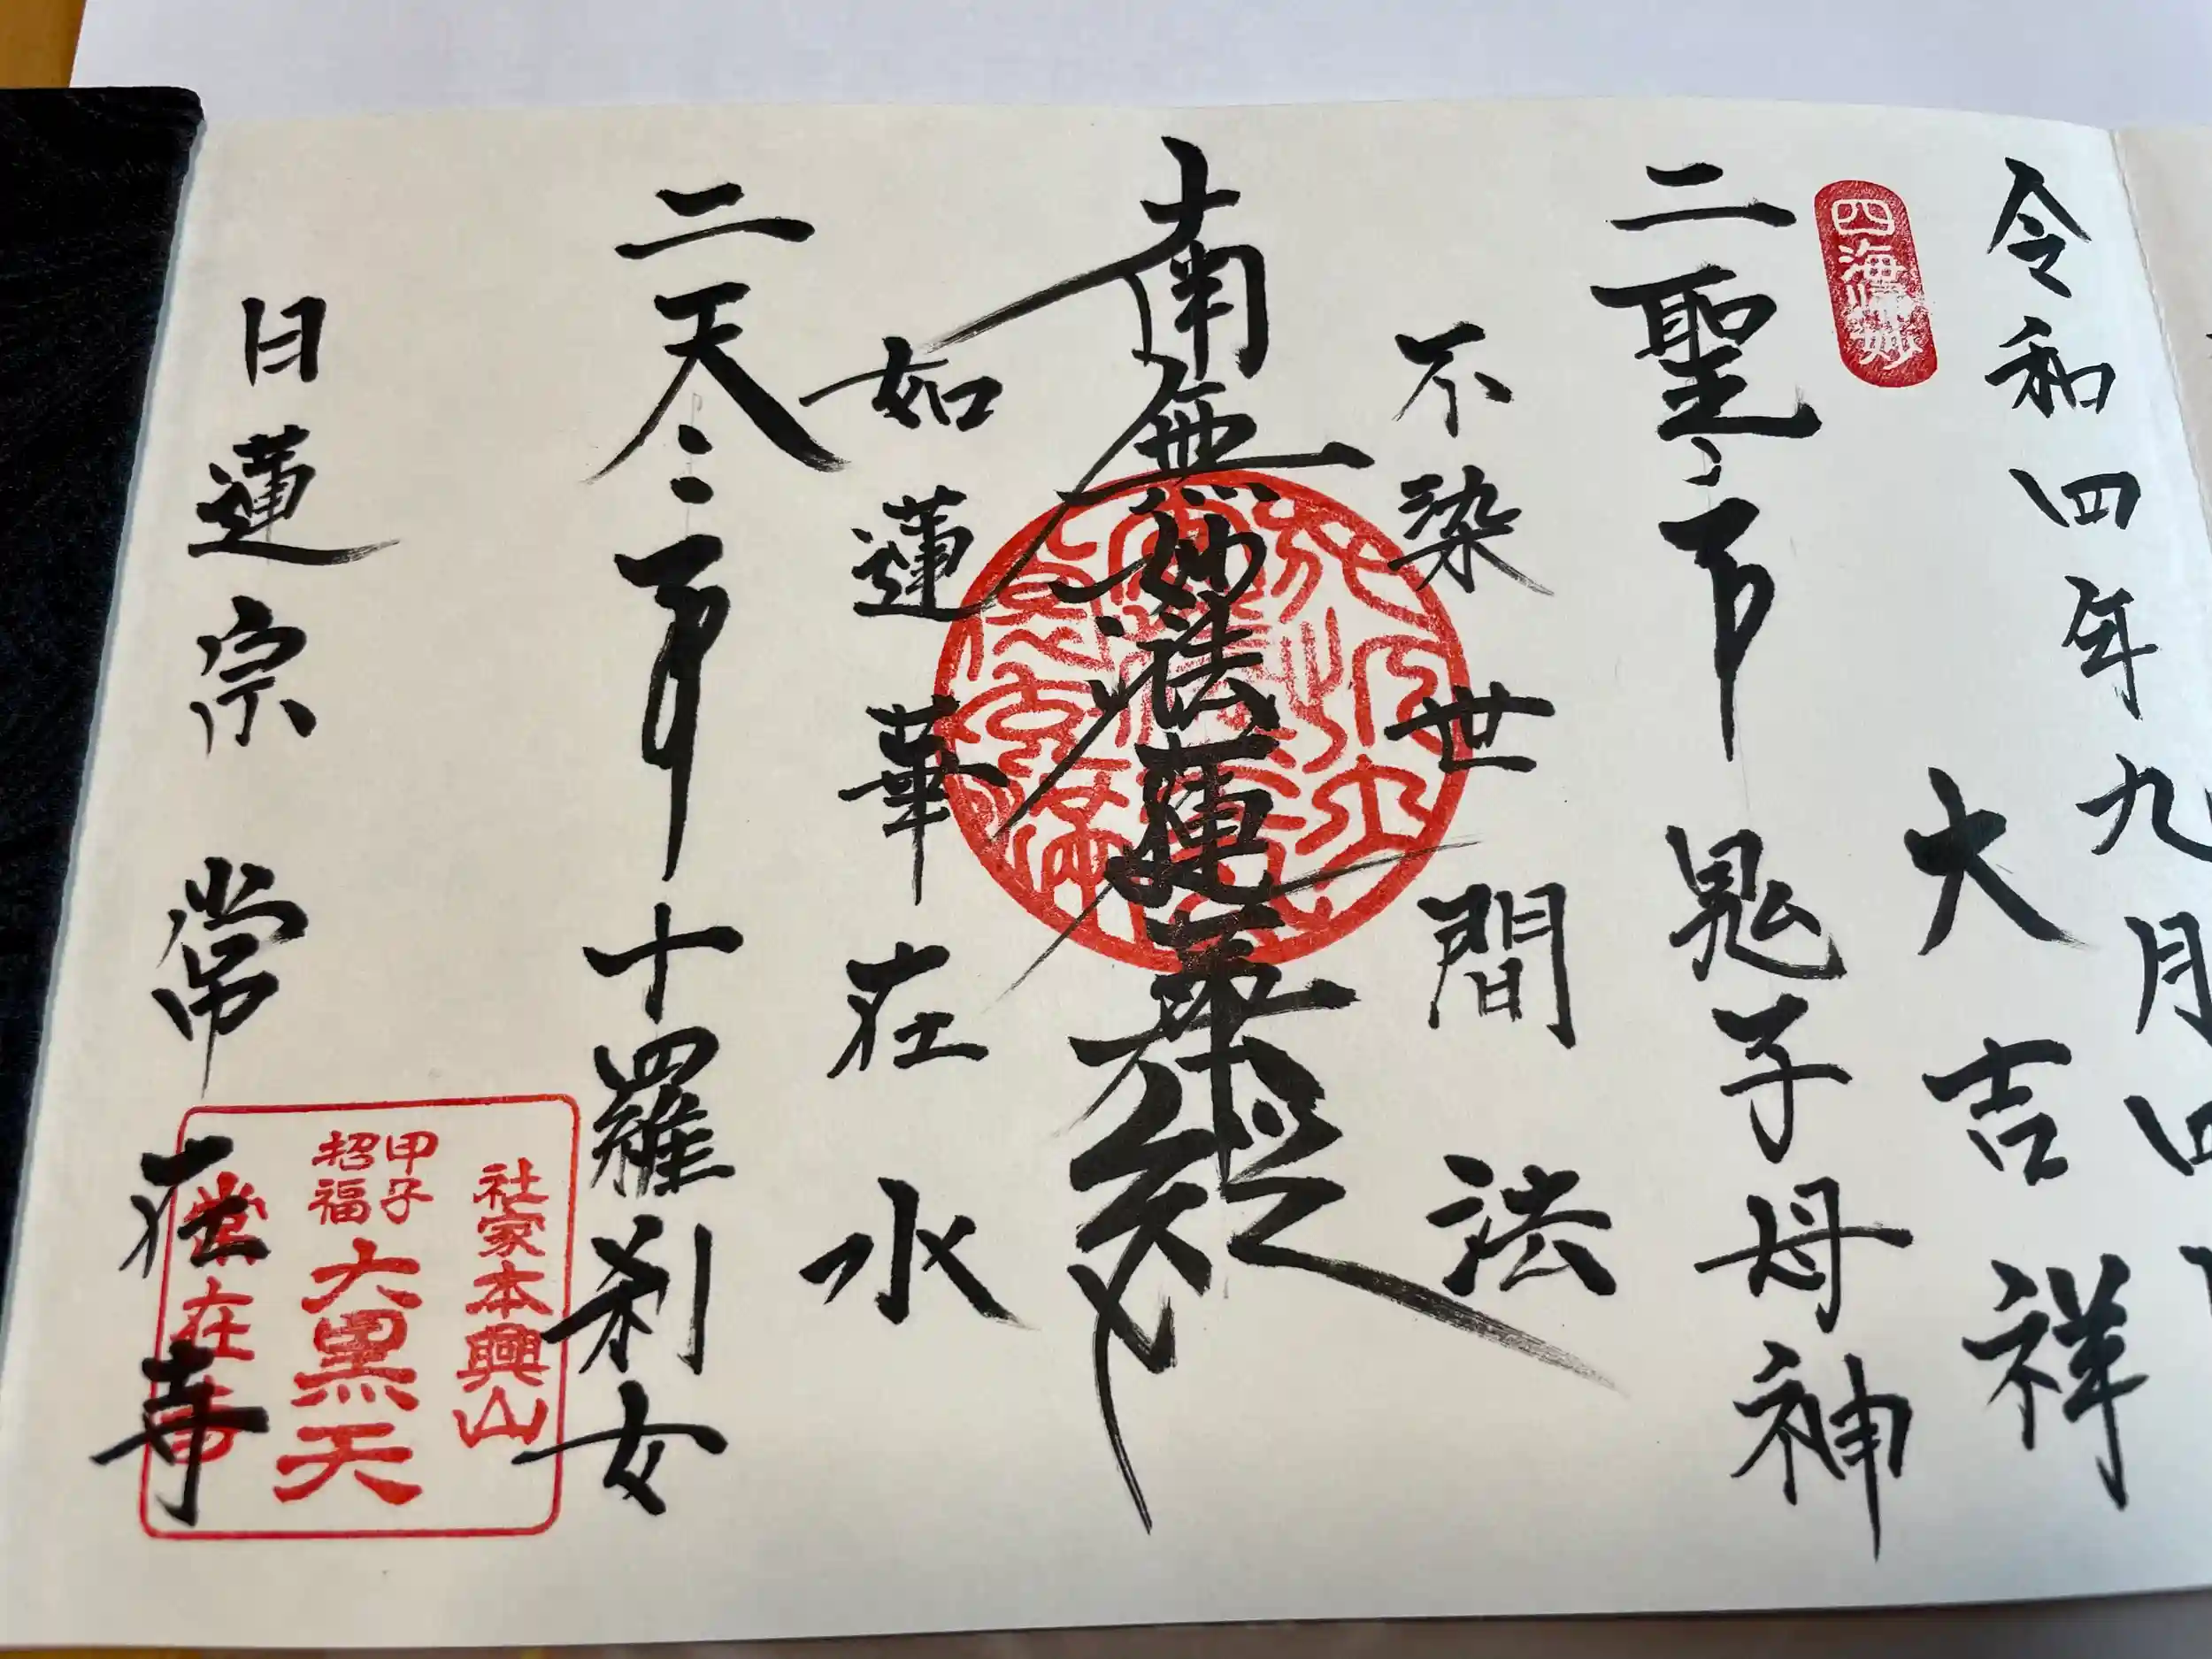 令和四年九月四
大吉祥
四海帰妙
二聖
鬼子母神
不染世間法
南無妙法蓮華経
如蓮華在水
二天
十羅刹女
社家本興山
甲子
招福
大黒天
常在寺
日蓮宗 常在寺